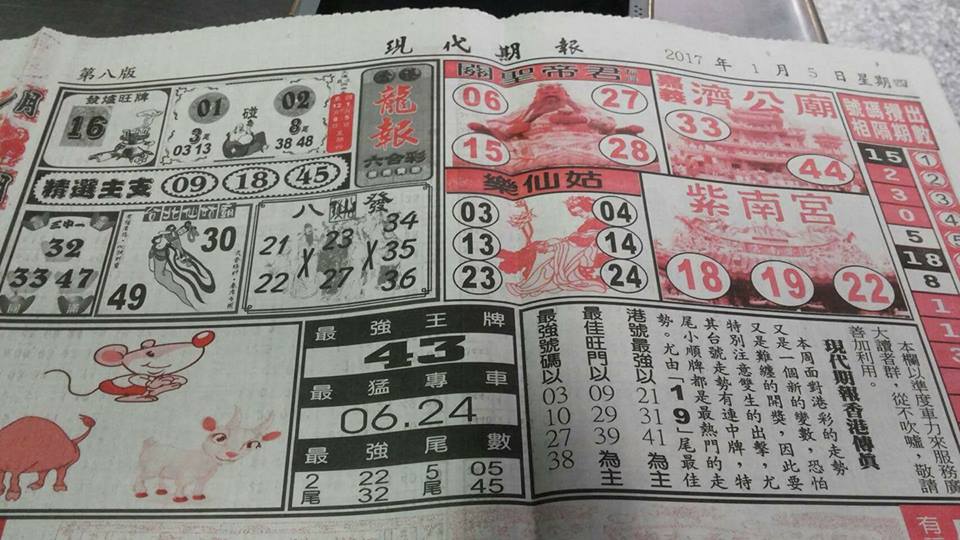 現代期報
第八版
2017年1月5日星期四
發爐旺牌
16
01
碰
02
3尾
03 13
8尾
38 48
龍報
六合彩
精選主支
09
18
45
三中一
32
33 47
台北仙姑報
30
49
八聯發
21
22
X
23
27
X
34
35
36
關聖帝君
06
27
15
28
嘉義
濟公廟
33
44
樂仙姑
03
04
13
14
23
24
紫南宮
18
19
22
號碼相隔
攪出期數
15
2
3
0
5
18
8
1
1
3
1
2
3
4
5
最強王牌
43
最猛專車
06.24
最強尾數
2尾
22
32
5尾
05
45
本欄以準度車力來服務廣
大讀者群,從不吹噓,敬請
善加利用。
現代期報香港傳真
本周面對港彩的走勢
又是一個新的變數,恐怕
又是難纏的開獎,因此要
特別注意雙生的出擊,尤
其台號走勢有連中牌,特
尾小順牌都是最熱門的走
勢。尤由「19」尾最佳
港號最強以21 31 41為主
最佳旺門以09 29 39為主
最強號碼以03 10 27 38
有